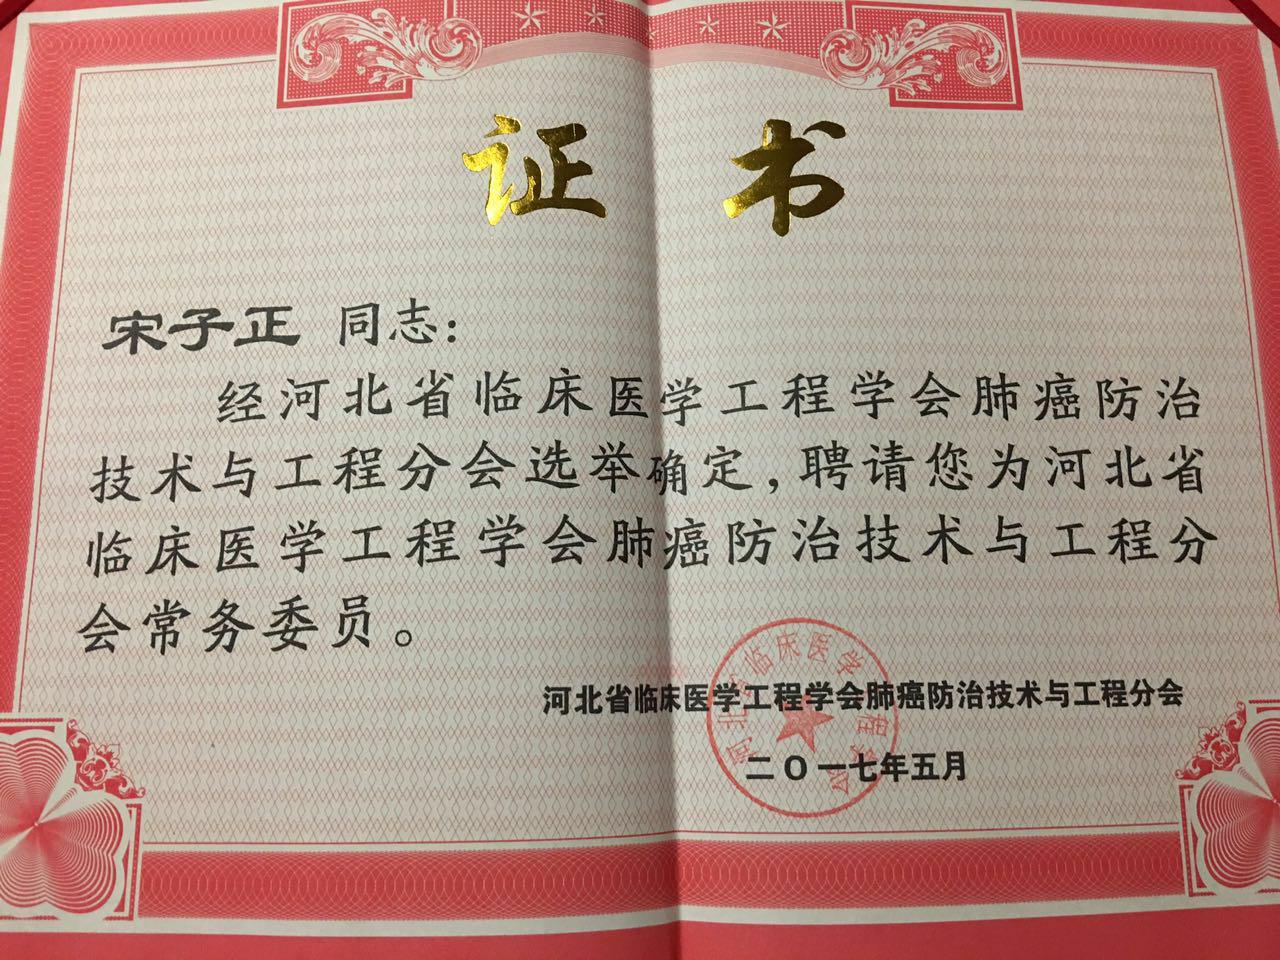 证书
宋子正 同志：
经河北省临床医学工程学会肺癌防治
技术与工程分会选举确定，聘请您为河北省
临床医学工程学会肺癌防治技术与工程分
会常务委员。
河北省临床医学工程学会肺癌防治技术与工程分会
二O一七年五月
河北省临床医学工程学会